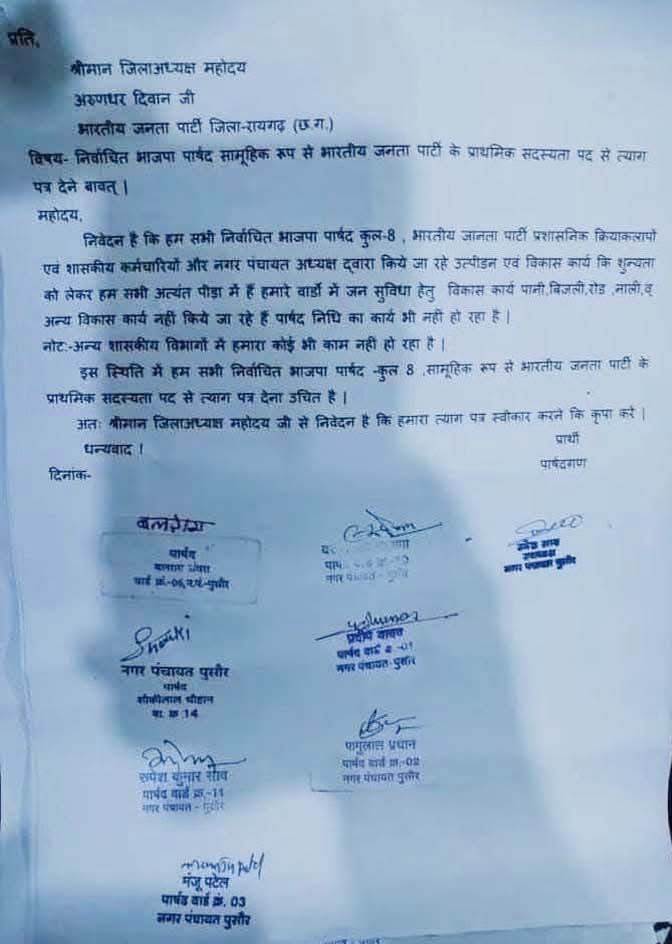 प्रति,
श्रीमान जिलाअध्यक्ष महोदय
अरुणधर दिवान जी
भारतीय जनता पार्टी जिला-रायगढ़ (छ.ग.)
विषय- निर्वाचित भाजपा पार्षद सामूहिक रूप से भारतीय जनता पार्टी के प्राथमिक सदस्यता पद से त्याग
पत्र देने बावत् |
महोदय,
निवेदन है कि हम सभी निर्वाचित भाजपा पार्षद कुल-8 , भारतीय जानता पार्टी प्रशासनिक क्रियाकलापों
एवं शासकीय कर्मचारियों और नगर पंचायत अध्यक्ष द्वारा किये जा रहे उत्पीडन एवं विकास कार्य कि शुन्यता
को लेकर हम सभी अत्यंत पीड़ा में हैं हमारे वार्डो में जन सुविधा हेतु विकास कार्य पानी,बिजली,रोड ,नाली,व्
अन्य विकास कार्य नहीं किये जा रहे हैं पार्षद निधि का कार्य भी नहीं हो रहा है |
नोट:-अन्य शासकीय विभागों में हमारा कोई भी काम नहीं हो रहा है |
इस स्थिति में हम सभी निर्वाचित भाजपा पार्षद -कुल 8 ,सामूहिक रूप से भारतीय जनता पार्टी के
प्राथमिक सदस्यता पद से त्याग पत्र देना उचित है |
अतः श्रीमान जिलाअध्यक्ष महोदय जी से निवेदन है कि हमारा त्याग पत्र स्वीकार करने कि कृपा करे |
धन्यवाद !
प्रार्थी
पार्षदगण
दिनांक-
पार्षद
वार्ड क्रं.-06, न.पं.-पुसौर
नगर पंचायत - पुसौर
उपाध्यक्ष
नगर पंचायत पुसौर
नगर पंचायत पुसौर
पार्षद
वा. क्र 14
प्रदीप
पार्षद वार्ड क्र.-01
नगर पंचायत-पुसौर
रुपेश कुमार साव
पार्षद वार्ड क्र.-11
नगर पंचायत - पुसौर
प्रधान
पार्षद वार्ड क्र.-02
नगर पंचायत पुसौर
मंजू पटेल
पार्षद वार्ड क्रं. 03
नगर पंचायत पुसौर